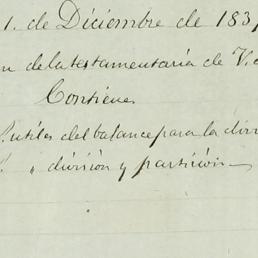 1. de Diciembre de 183
n de la testamentaria de V.
Contiene
utiles del balance para la divi
" división y partición